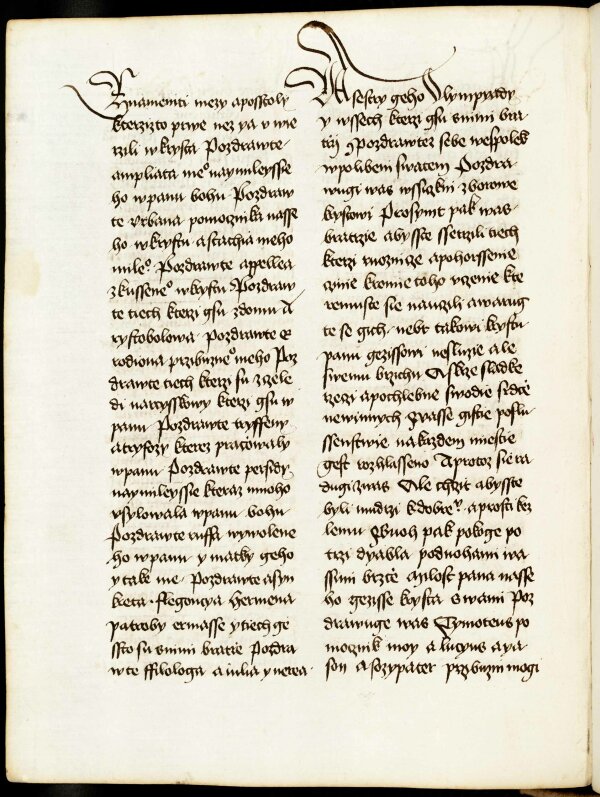 Znameniti mezy aposstoly
kterzizto prwe nez ya v wie
rzili w krysta Pozdrawte
ampliata meº naymileyssie
ho w panu bohu Pozdraw
te Vrbana pomoznika nasse
ho w krystu a stachia meho
mileº. Pozdrawte appellea
zkusseneº w krystu Pozdraw
te tiech kterzi gsu z domu A
rystobolowa Pozdrawte e
rodiona przibuzneº meho Poz
drawte tiech kterzi su z zele
di narcyssowy kterzi gsu w
panu Pozdrawte tryffenu
a tryfozy kterez pracowaly
w panu Pozdrawte persidy
naymileyssie kteraz mnoho
vsylowala w panu bohu
Pozdrawte ruffa wywolene
ho w panu y matky geho
y take me Pozdrawte asyn
kreta flegoncya hermena
patroby ermasse y tiech ge
ssto su s nimi bratie Pozdra
wte ffilologa a iulia y nerea
A sestry geho Olympiady
y wssech kterzi gsu s nimi bra
trzij Pozdrawtez sebe wespolek
w polibeni swatem Pozdra
wugi was wssiczkni zborowe
krystowi Prosymt pak was
bratrzie abysste ssetrzili tiech
kterzi ruoznice a pohorssenie
czinie kromie toho vczenie kte
remuste sie nauczili a warug
te se gich nebt takowi krystu
panu gezissowi neslúzie ale
swemu brzichu A skrze sladke
rzeczi a pochlebne swodie srdce
newinnych Wasse gistie poslu
ssenstwie na kazdem miestie
gest rozhlasseno A protoz sie ra
dugi z was Ale chczit abysste
byli mudrzi k dobreº a prosti ke z
lemu Buoh pak pokoge po
trzi dyabla pod nohami wa
ssimi brzcze Milost pana nasse
ho gezisse krysta s wami Poz
drawuge was Tymoteus po
moznik moy a lucyus a ya
son a sozypater przibuzni mogi